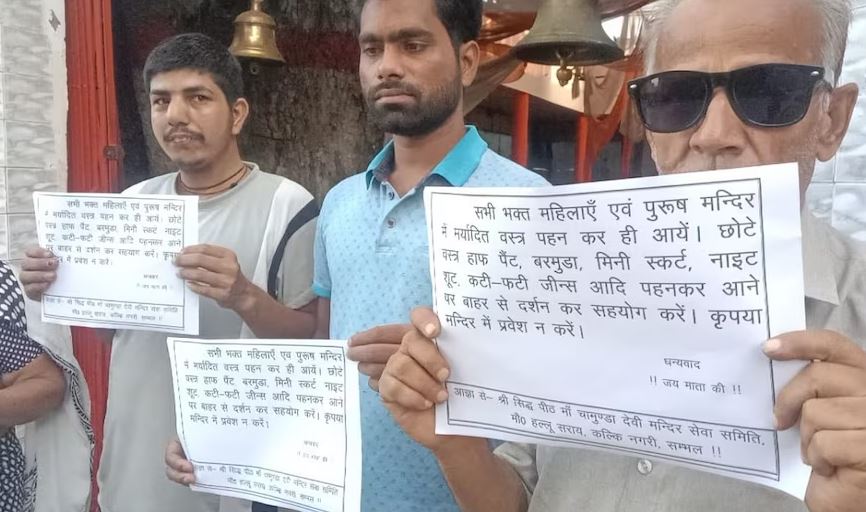 सभी भक्त महिलाएँ एवं पुरूष मन्दिर
में मर्यादित वस्त्र पहन कर ही आयें। छोटे
वस्त्र हाफ पैंट, बरमुडा, मिनी स्कर्ट, नाइट
शूट, कटी-फटी जीन्स आदि पहनकर आने
पर बाहर से दर्शन कर सहयोग करें। कृपया
मन्दिर में प्रवेश न करें।
धन्यवाद
!! जय माता की !!
आज्ञा से- श्री सिद्ध पीठ माँ चामुण्डा देवी मन्दिर सेवा समिति,
मौ0 हल्लू सराय, कल्कि नगरी, सम्भल !!
सभी भक्त महिलाएँ एवं पुरूष मन्दिर
में मर्यादित वस्त्र पहन कर ही आयें। छोटे
वस्त्र हाफ पैंट, बरमुडा, मिनी स्कर्ट, नाइट
शूट, कटी-फटी जीन्स आदि पहनकर आने
पर बाहर से दर्शन कर सहयोग करें। कृपया
मन्दिर में प्रवेश न करें।
धन्यवाद
!! जय माता की !!
आज्ञा से- श्री सिद्ध पीठ माँ चामुण्डा देवी मन्दिर सेवा समिति
मौ0 हल्लू सराय, कल्कि नगरी, सम्भल !!
सभी भक्त महिलाएँ एवं पुरूष मन्दिर
में मर्यादित वस्त्र पहन कर ही आयें। छोटे
वस्त्र हाफ पैंट, बरमुडा, मिनी स्कर्ट, नाइट
शूट, कटी-फटी जीन्स आदि पहनकर आने
पर बाहर से दर्शन कर सहयोग करें। कृपया
मन्दिर में प्रवेश न करें।
धन्यवाद
से- श्री सिद्ध पीठ माँ चामुण्डा देवी मन्दिर सेवा समिति
मौ0 हल्लू सराय, कल्कि नगरी, सम्भल !!